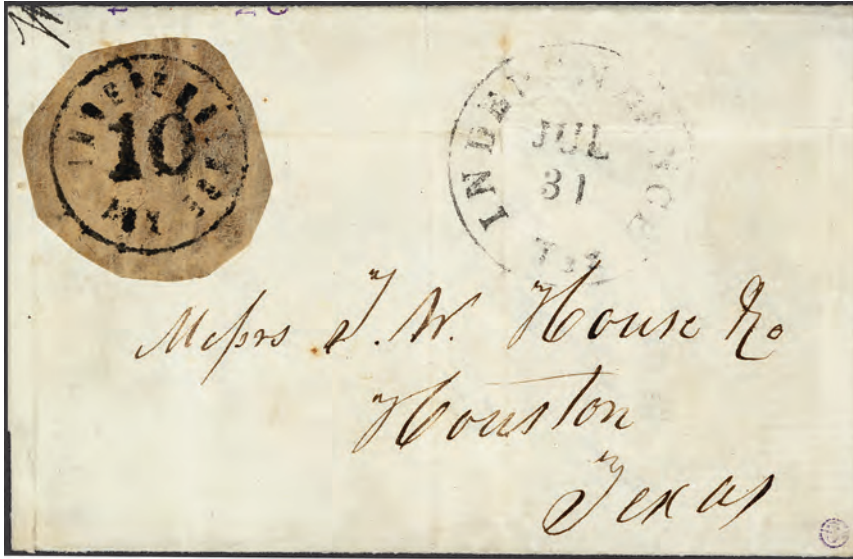 INDEPENDENCE
10
TEX
INDEPENDENCE
JUL
31
Tex
Messrs T. W. House & Co
Houston
Texas